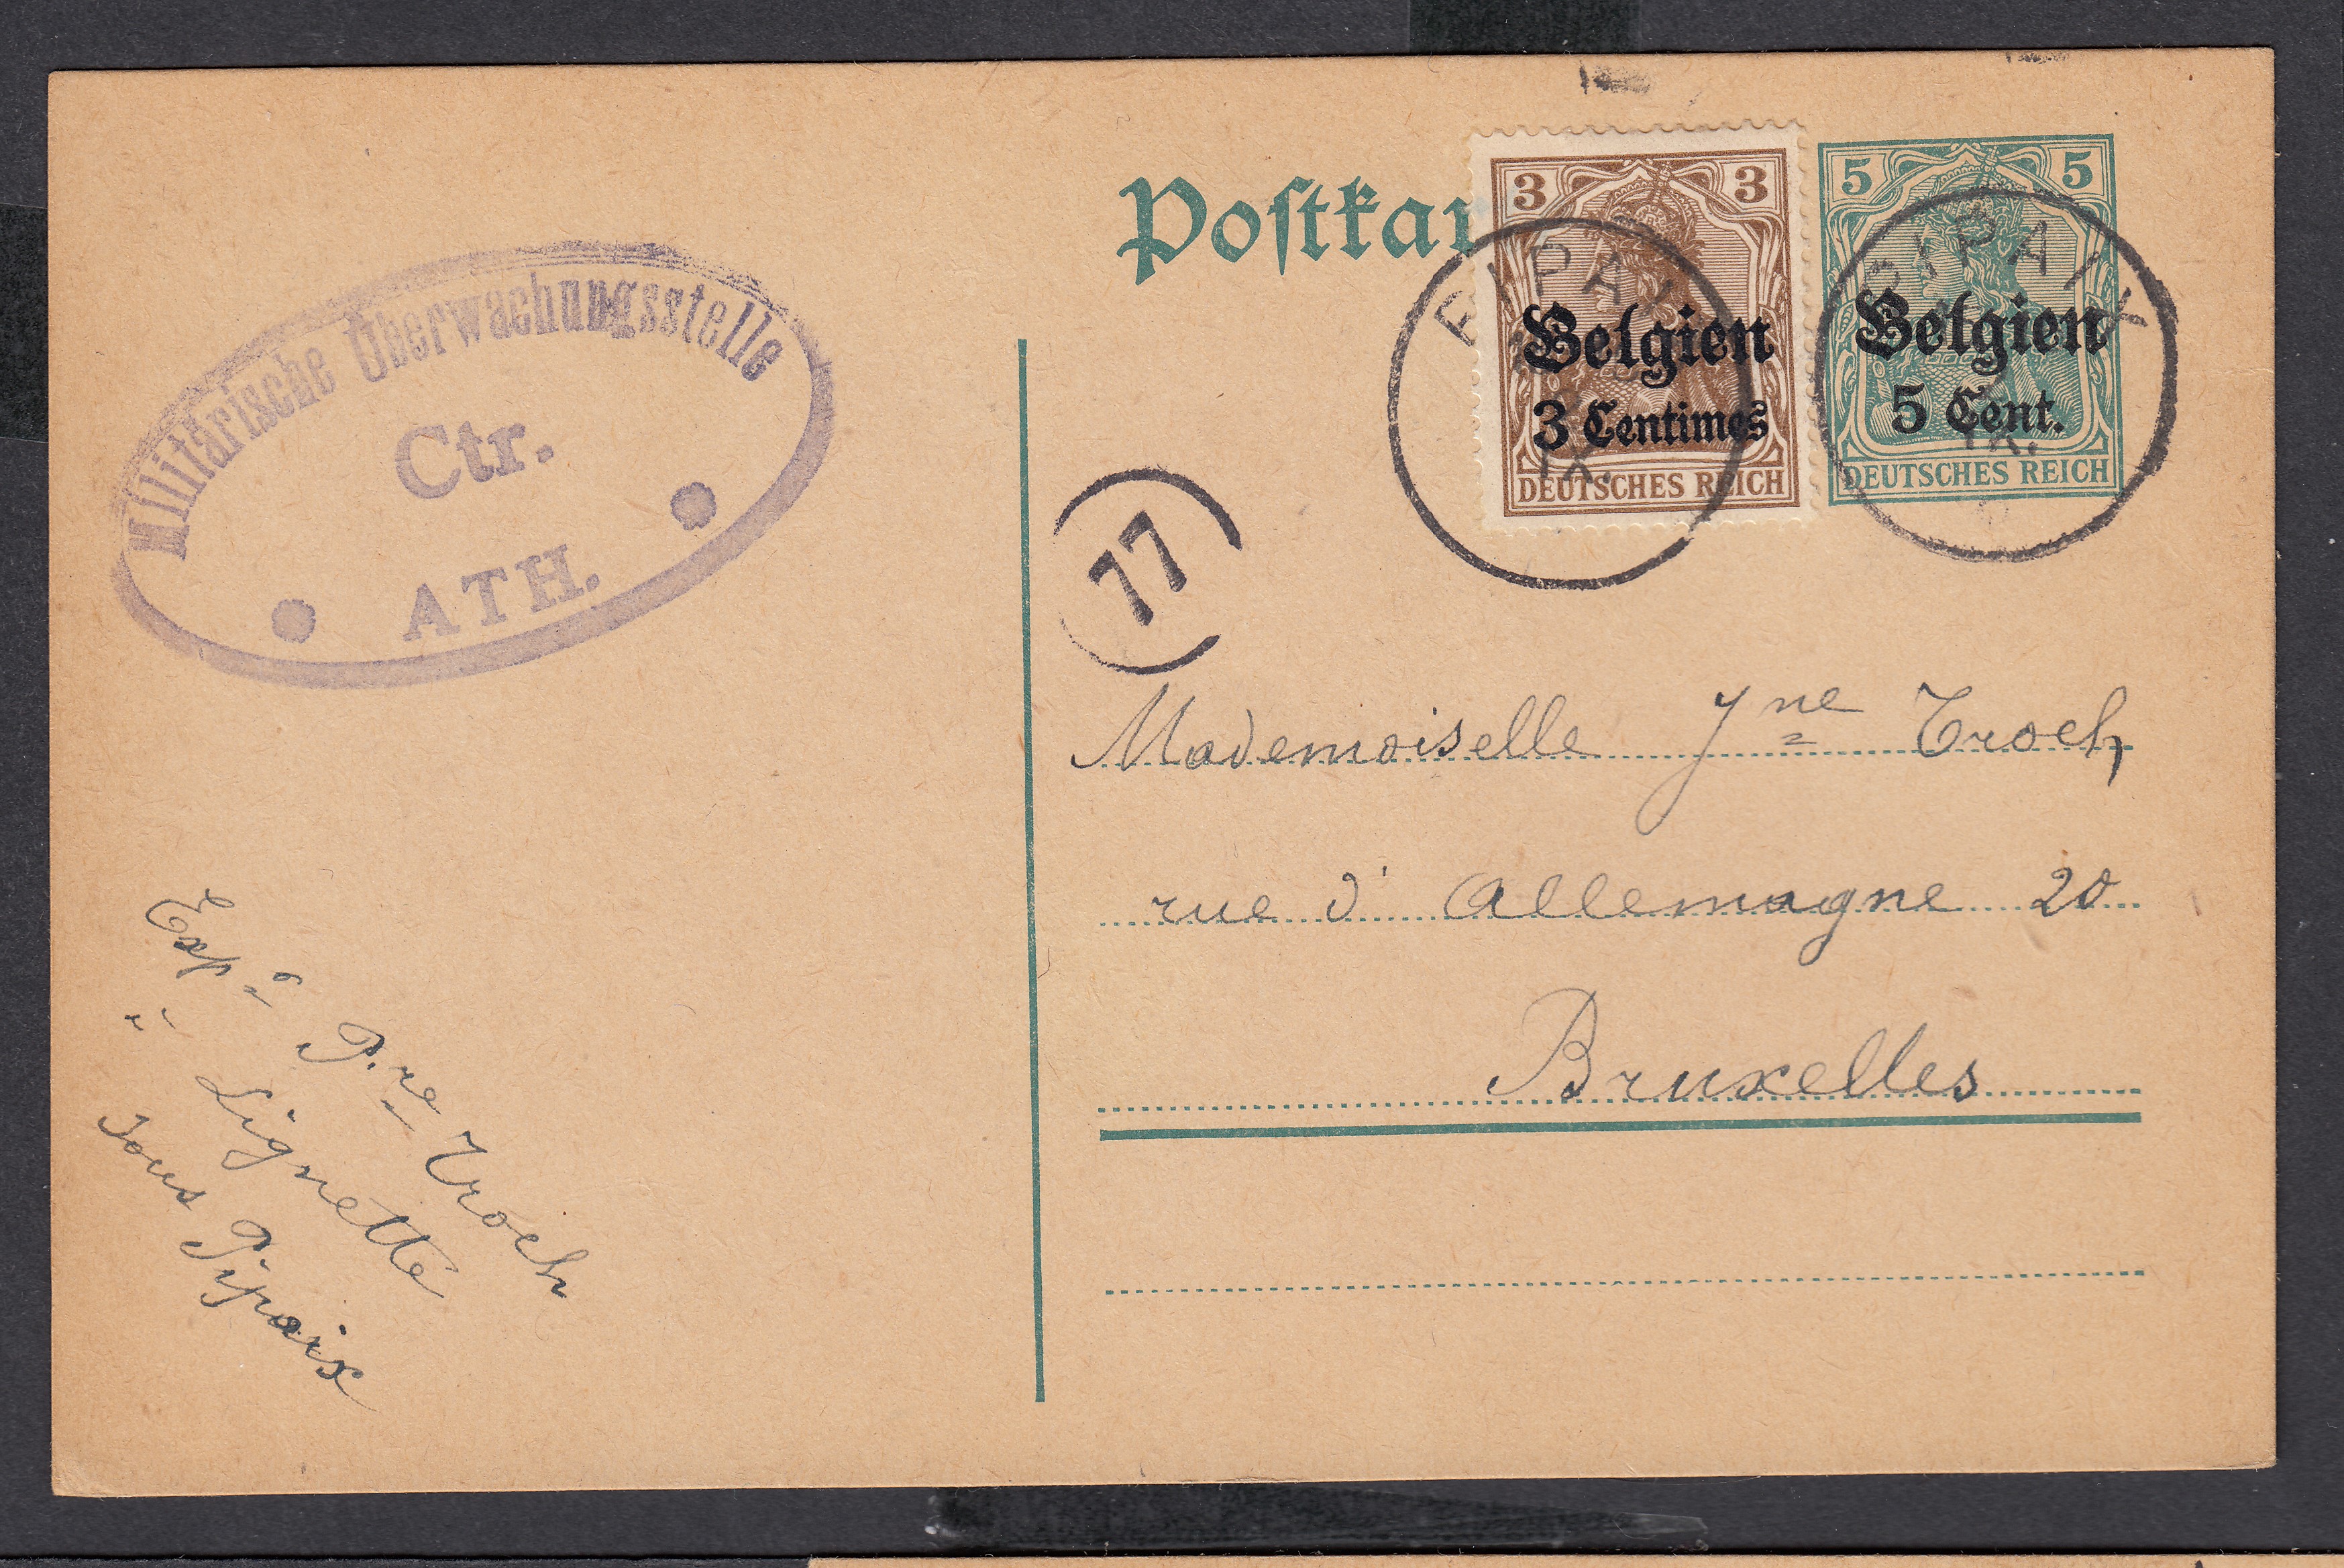 Postkar
3 3
Belgien
3 Centimes
DEUTSCHES REICH
5 5
Belgien
5 Cent.
DEUTSCHES REICH
PIPAIX
PIPAIX
Militärische Überwachungsstelle
Ctr.
ATH.
77
Mademoiselle Jne Troch
rue d'Allemagne 20
Bruxelles
Exp. Pre Troch
" Lignette
sous Pipaix